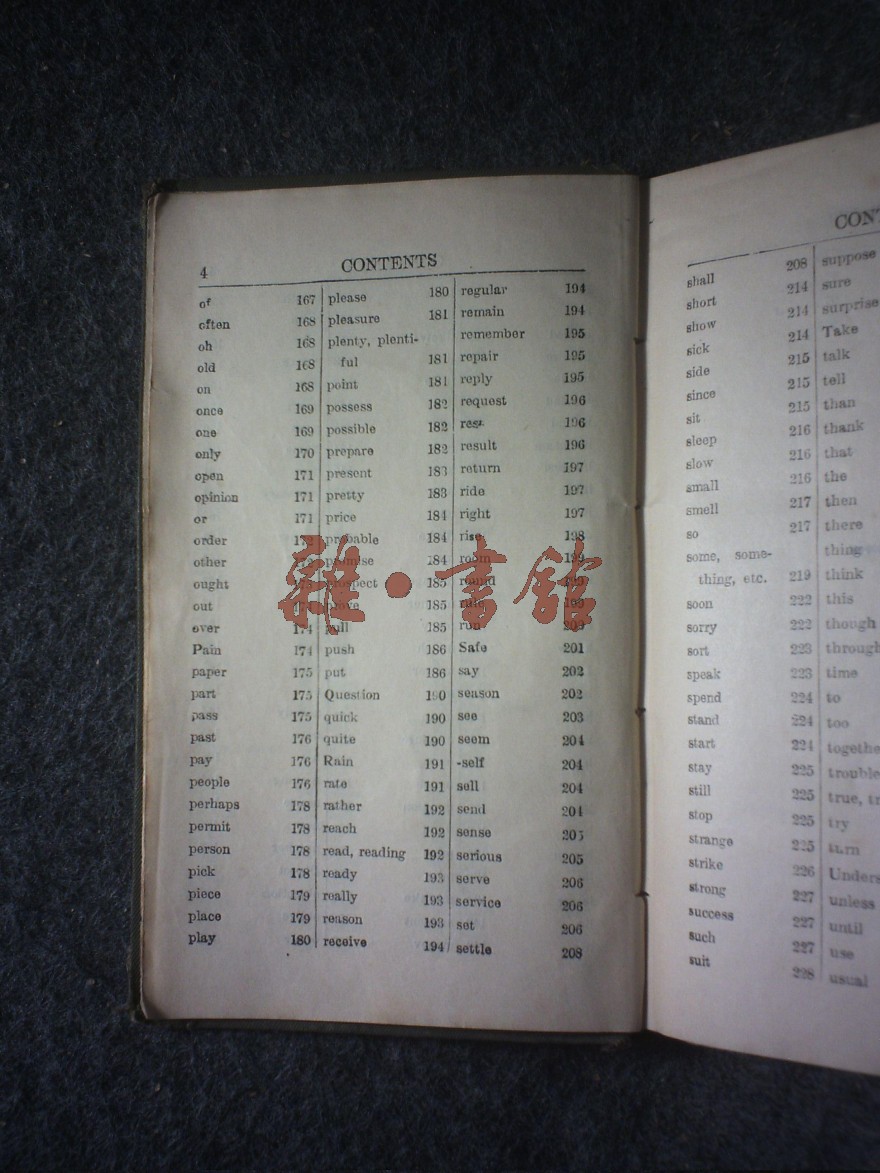 4
CONTENTS
of 167
often 168
oh 168
old 168
on 168
once 169
one 169
only 170
open 171
opinion 171
or 171
order
other
ought
out
over 174
Pain 174
paper 175
part 175
pass 175
past 176
pay 176
people 176
perhaps 178
permit 178
person 178
pick 178
piece 179
place 179
play 180
please 180
pleasure 181
plenty, plenti-
ful 181
point 181
possess 182
possible 182
prepare 182
present 183
pretty 183
price 184
probable 184
promise 184
prospect 185
prove 185
pull 185
push 186
put 186
Question 190
quick 190
quite 190
Rain 191
rate 191
rather 192
reach 192
read, reading 192
ready 193
really 193
reason 193
receive 194
regular 194
remain 194
remember 195
repair 195
reply 195
request 196
rest 196
result 196
return 197
ride 197
right 197
rise 198
room 199
round 199
rule 199
run
Safe 201
say 202
season 202
see 203
seem 204
-self 204
sell 204
send 204
sense 205
serious 205
serve 206
service 206
set 206
settle 208
雜·書館
CONT
shall 208
short 214
show 214
sick 214
side 215
since 215
sit 215
sleep 216
slow 216
small 216
smell 217
so 217
some, some-
thing, etc. 219
soon 222
sorry 222
sort 223
speak 223
spend 224
stand 224
start 224
stay 225
still 225
stop 225
strange 225
strike 226
strong 227
success 227
such 227
suit 228
suppose
sure
surprise
Take
talk
tell
than
thank
that
the
then
there
thing
think
this
though
through
time
to
too
togethe
trouble
true, tr
try
turn
Unders
unless
until
use
usual